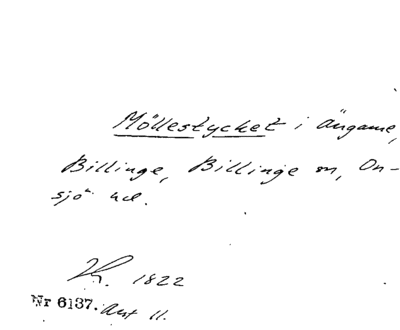 Möllestycket i Ängarne,
Billinge, Billinge sn, On-
sjö hd.
1822
Nr 6137. Avst 11.